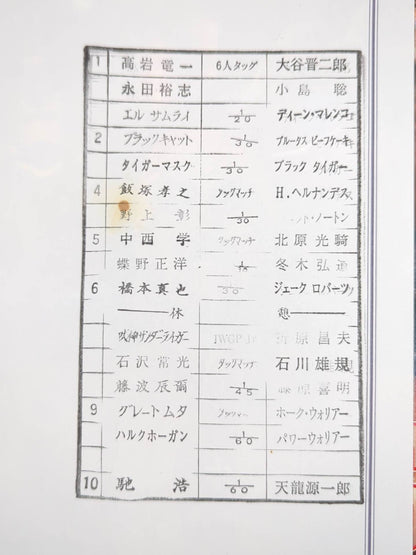 1 高岩竜一 6人タッグ 大谷晋二郎
永田裕志 小島聡
エル サムライ 1/20 ディーン・マレンコ
2 ブラックキャット 1/30 ブルータス ビーフケーキ
タイガーマスク 1/30 ブラック タイガー
4 飯塚孝之 タッグマッチ H.ヘルナンデス
野上彰 1/30 ット・ノートン
5 中西学 タッグマッチ 北原光騎
蝶野正洋 冬木弘道
6 橋本真也 30 ジェーク ロバーツ
休 憩
獣神サンダーライガー IWGP Jr 折原昌夫
石沢常光 タッグマッチ 石川雄規
藤波辰爾 1/45 原喜明
9 グレートムタ タッグマッチ ホーク・ウォリアー
ハルクホーガン 1/60 パワーウォリアー
10 馳浩 1/60 天龍源一郎